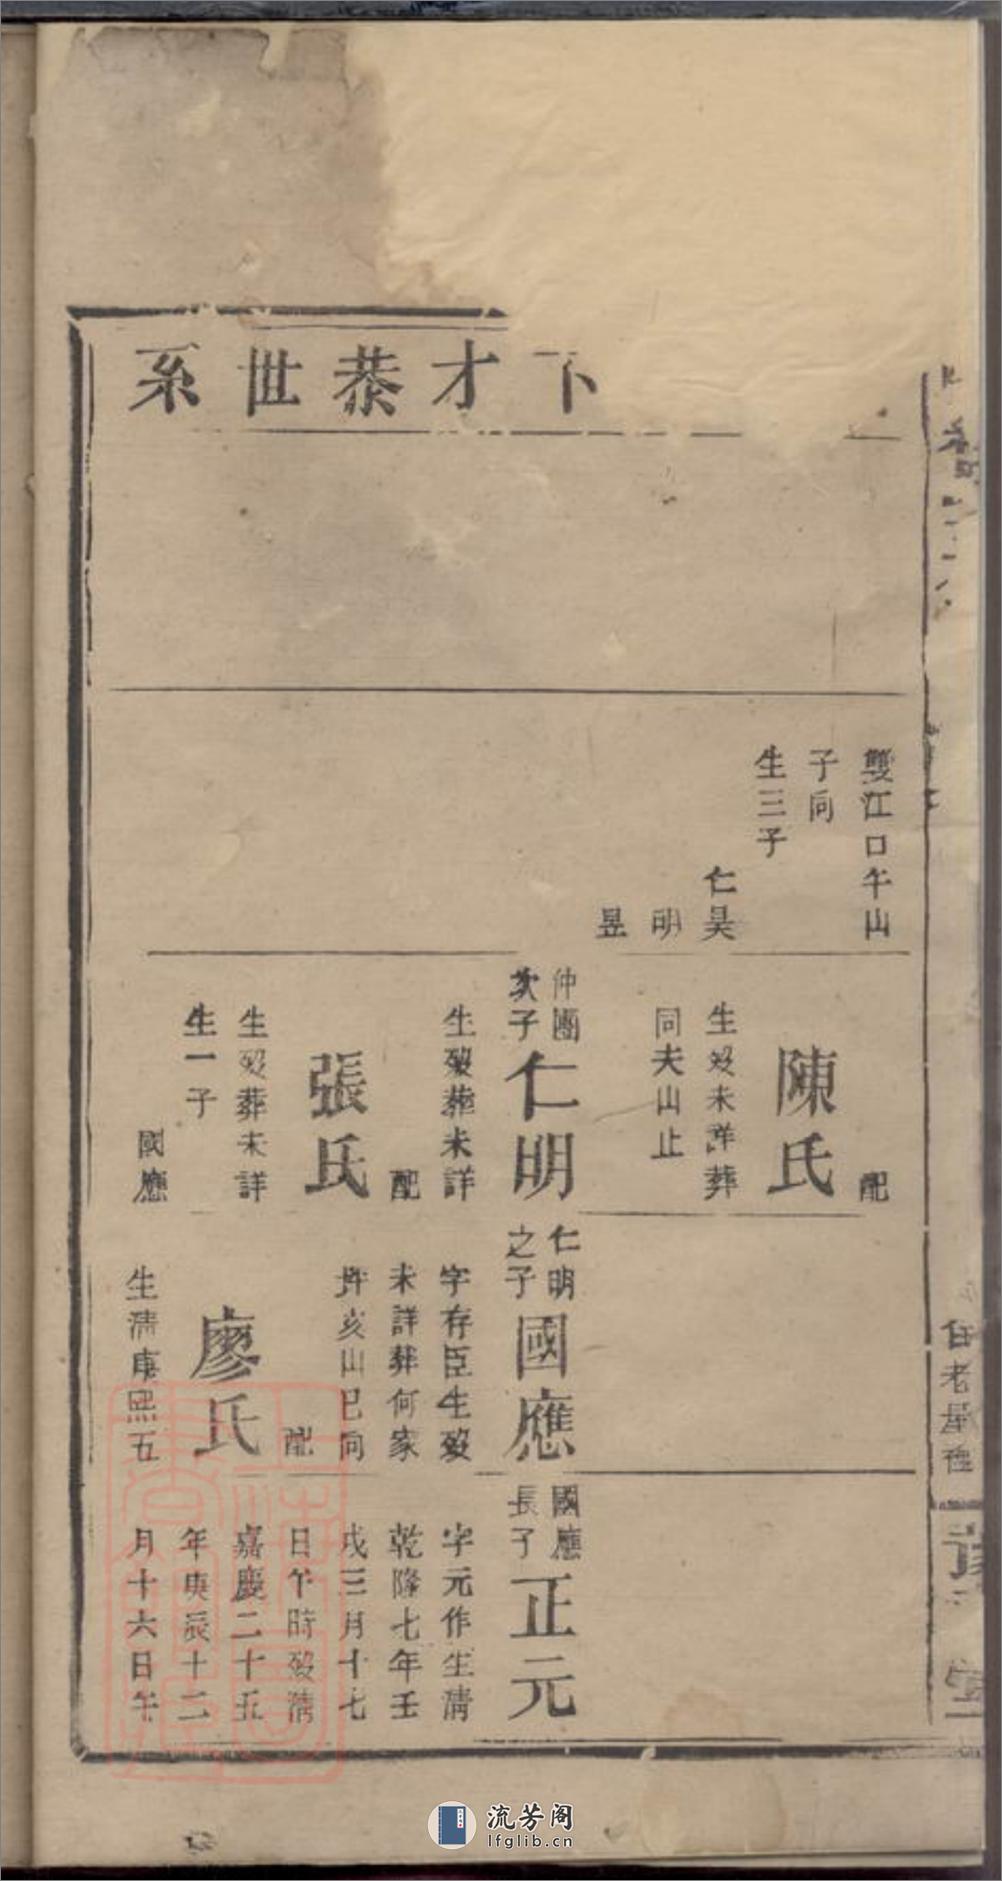 下才恭世系
雙江口午山
子向
生三子
仁昊
明
昱
配
陳氏
生歿未詳葬
同夫山止
仲團
次子
仁明
生歿葬未詳
配
張氏
生歿葬未詳
生一子
國應
仁明
之子
國應
字存臣生歿
未詳葬何家
亥山巳向
配
廖氏
生清康熙五
國應
長子
正元
字元作生清
乾隆七年壬
戌三月十七
日午時歿清
嘉慶二十五
年庚辰十二
月十六日午
流芳阁
lfglib.cn